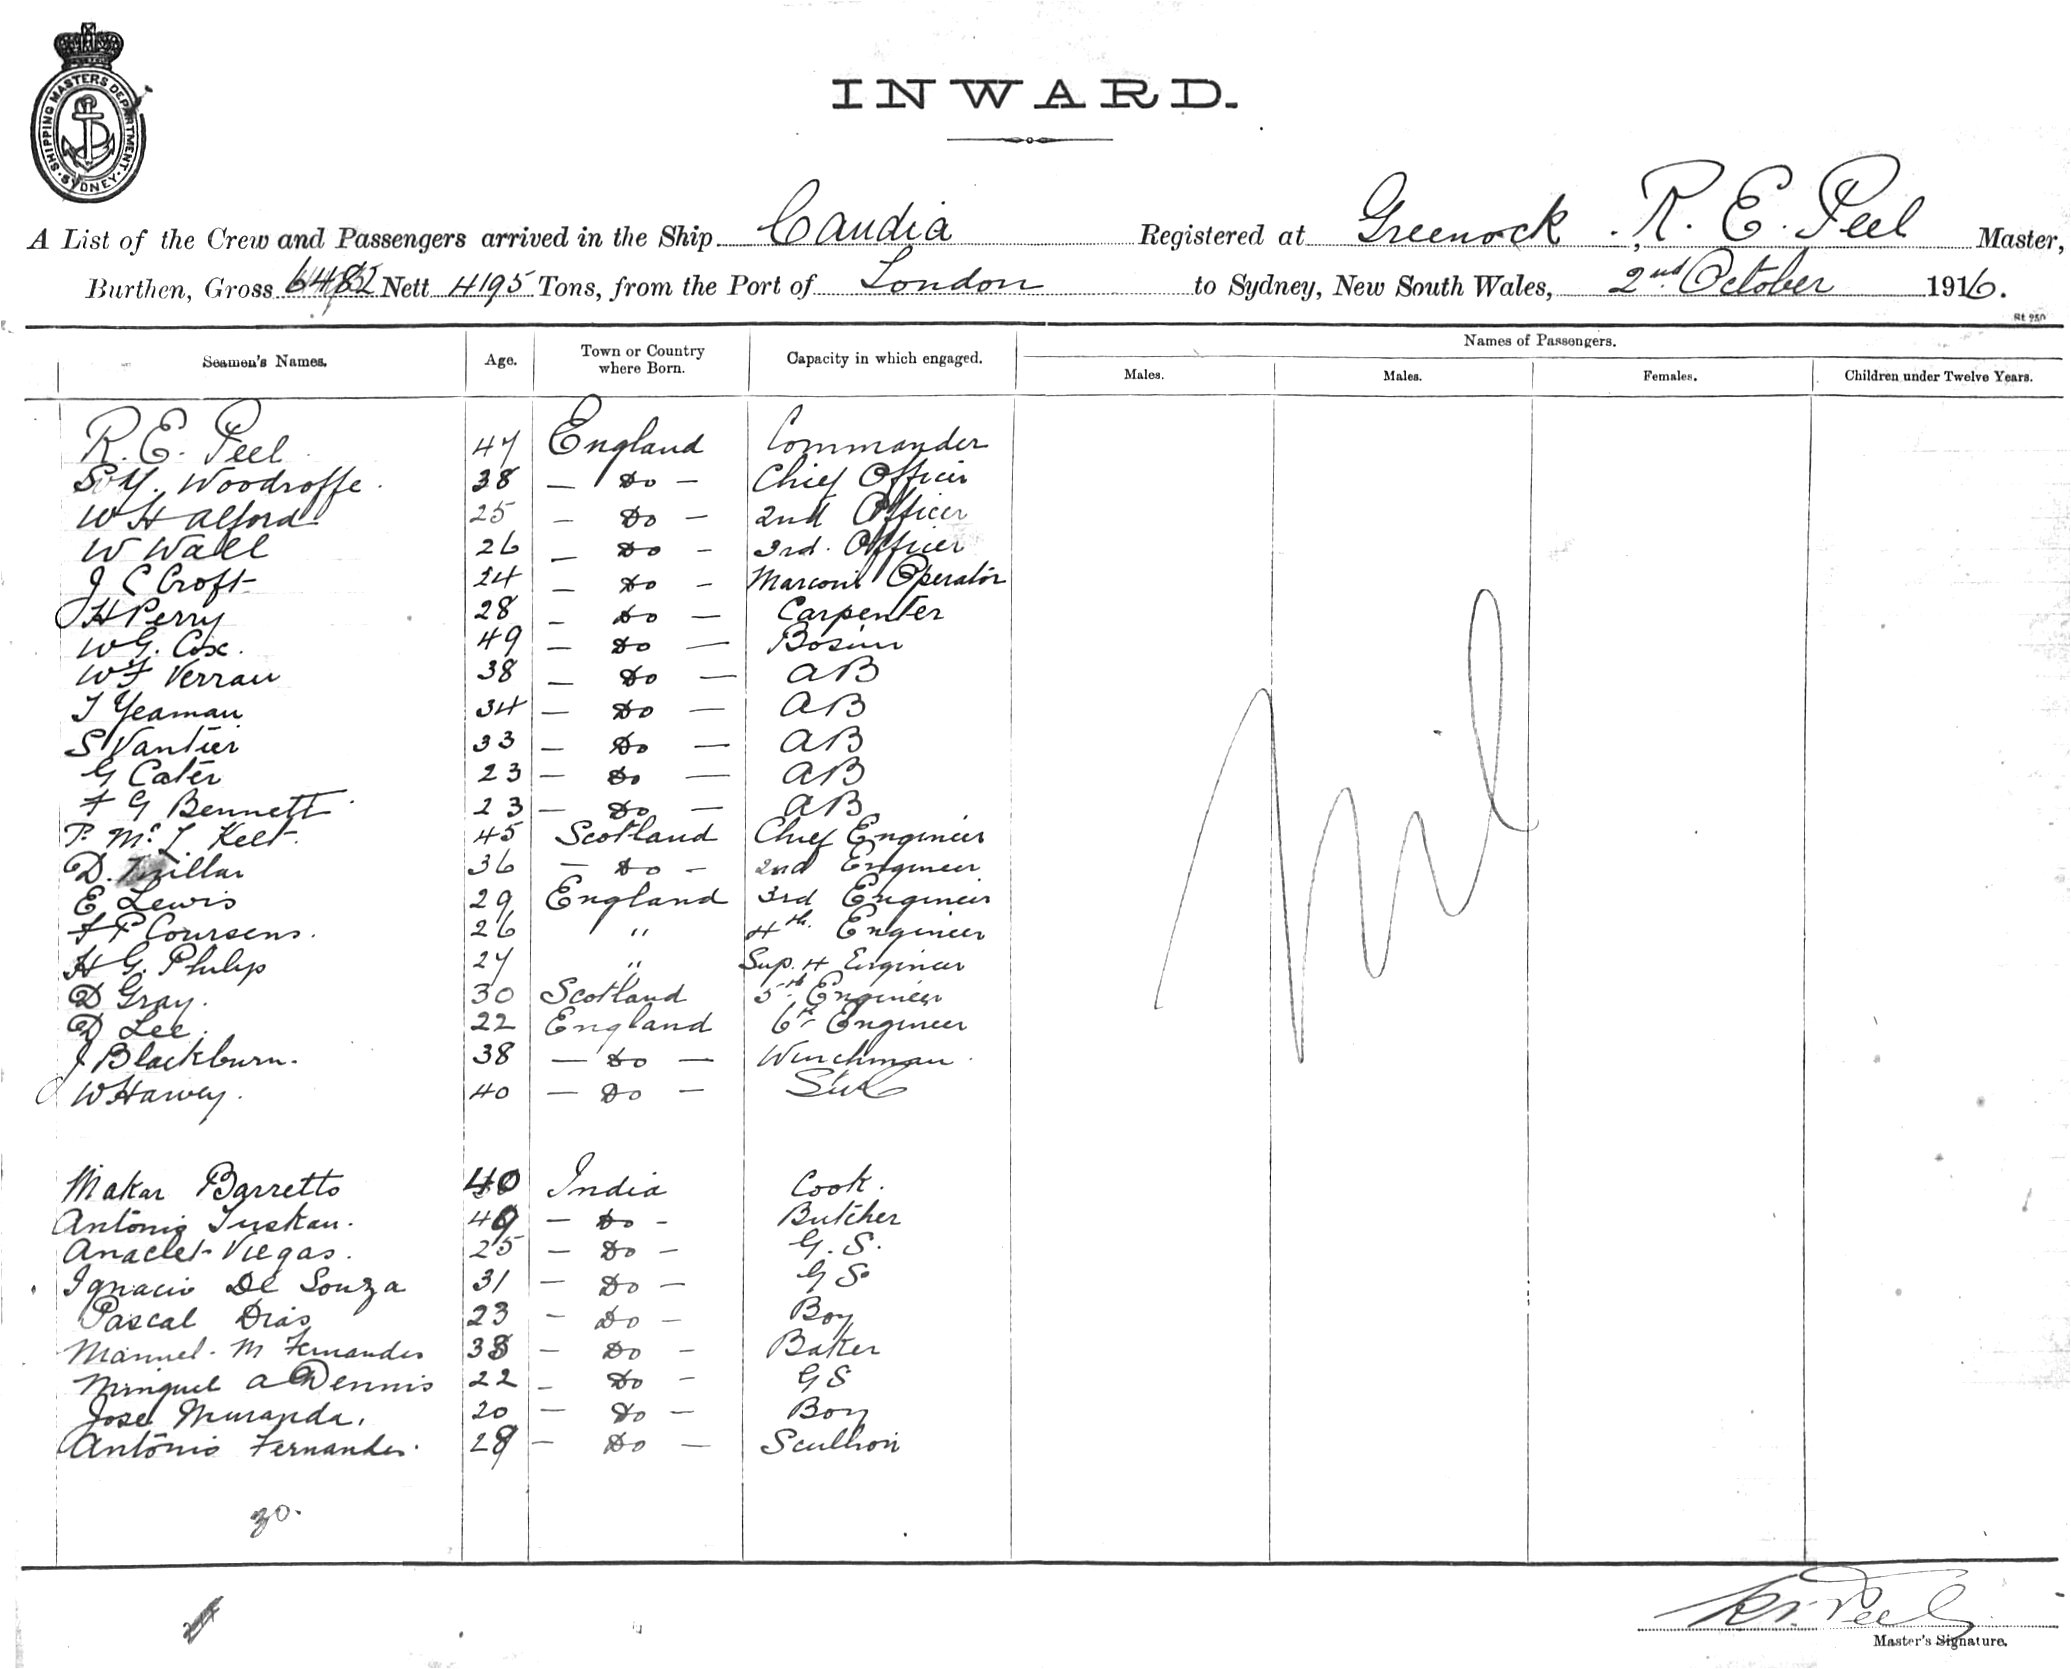 SHIPPING MASTERS DEPARTMENT. SYDNEY.
INWARD.
A List of the Crew and Passengers arrived in the Ship Candia Registered at Greenock. R. E. Peel Master,
Burthen, Gross 6482 Nett 4195 Tons, from the Port of London to Sydney, New South Wales, 2nd October 1916.
St 250
Seamen's Names. Age. Town or Country where Born. Capacity in which engaged. Names of Passengers.
Males. Males. Females. Children under Twelve Years.
R. E. Peel 47 England Commander
Woodroffe. 38 — Do — Chief Officer
W H Alford 25 — Do — 2nd Officer
W Wall 26 — Do — 3rd. Officer
J C Croft 24 — Do — Marconi Operator
H Perry 28 — Do — Carpenter
W G. Cox. 49 — Do — Bosun
W F Verran 38 — Do — AB
T Yeaman 34 — Do — AB
S Vantier 33 — Do — AB
G Cater 23 — Do — AB
F G Bennett 23 — Do — AB
P. Mc. L. Kelt. 45 Scotland Chief Engineer
D. Millar 36 — Do — 2nd Engineer
E Lewis 29 England 3rd Engineer
F P Coursens. 26 " 4th. Engineer
H G. Philip 27 " Sup. 4 Engineer
D Gray. 30 Scotland 5th Engineer
D Lee. 22 England 6th Engineer
J Blackburn. 38 — Do — Winchman
W Harvey. 40 — Do —
Makar Barretto 40 India Cook.
Antonio Tuskan. 49 — Do — Butcher
Anaclet Viegas. 25 — Do — G. S.
Ignacio De Souza 31 — Do — G S
Pascal Dias 23 — Do — Boy
Manuel. M Fernandes 33 — Do — Baker
Minguel A Dennis 22 — Do — G S
Jose Muranda. 20 — Do — Boy
Antonio Fernandes. 29 — Do — Scullion
Nil
30.
R. E. Peel
Master's Signature.